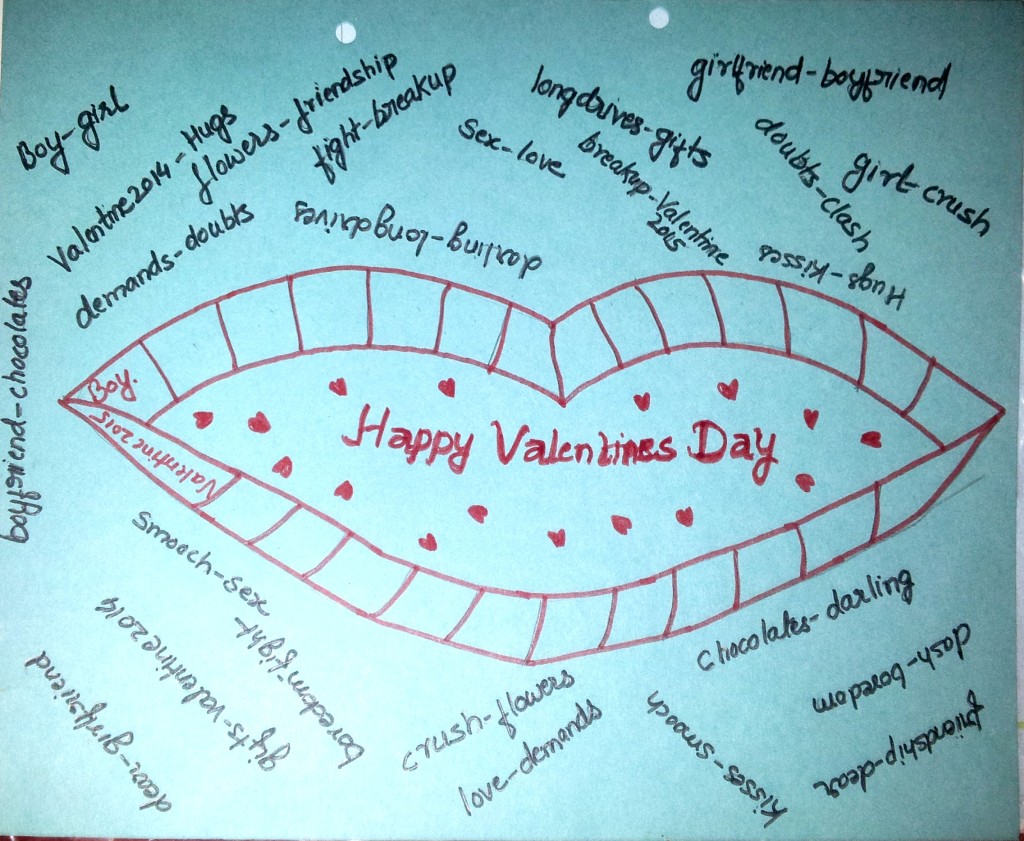 girlfriend-boyfriend
Boy-girl
Valentine2014-Hugs
flowers-friendship
fight-breakup
longdrives-gifts
sex-love
breakup-Valentine
2015
doubts-clash
girl-crush
demands-doubts
darling-longdrives
Hugs-kisses
boyfriend-chocolates
Boy.
Valentine2015
Happy Valentines Day
smooch-sex
boredom-fight
gifts-valentine2014
dear-girlfriend
crush-flowers
love-demands
chocolates-darling
kisses-smooch
clash-boredom
friendship-dear